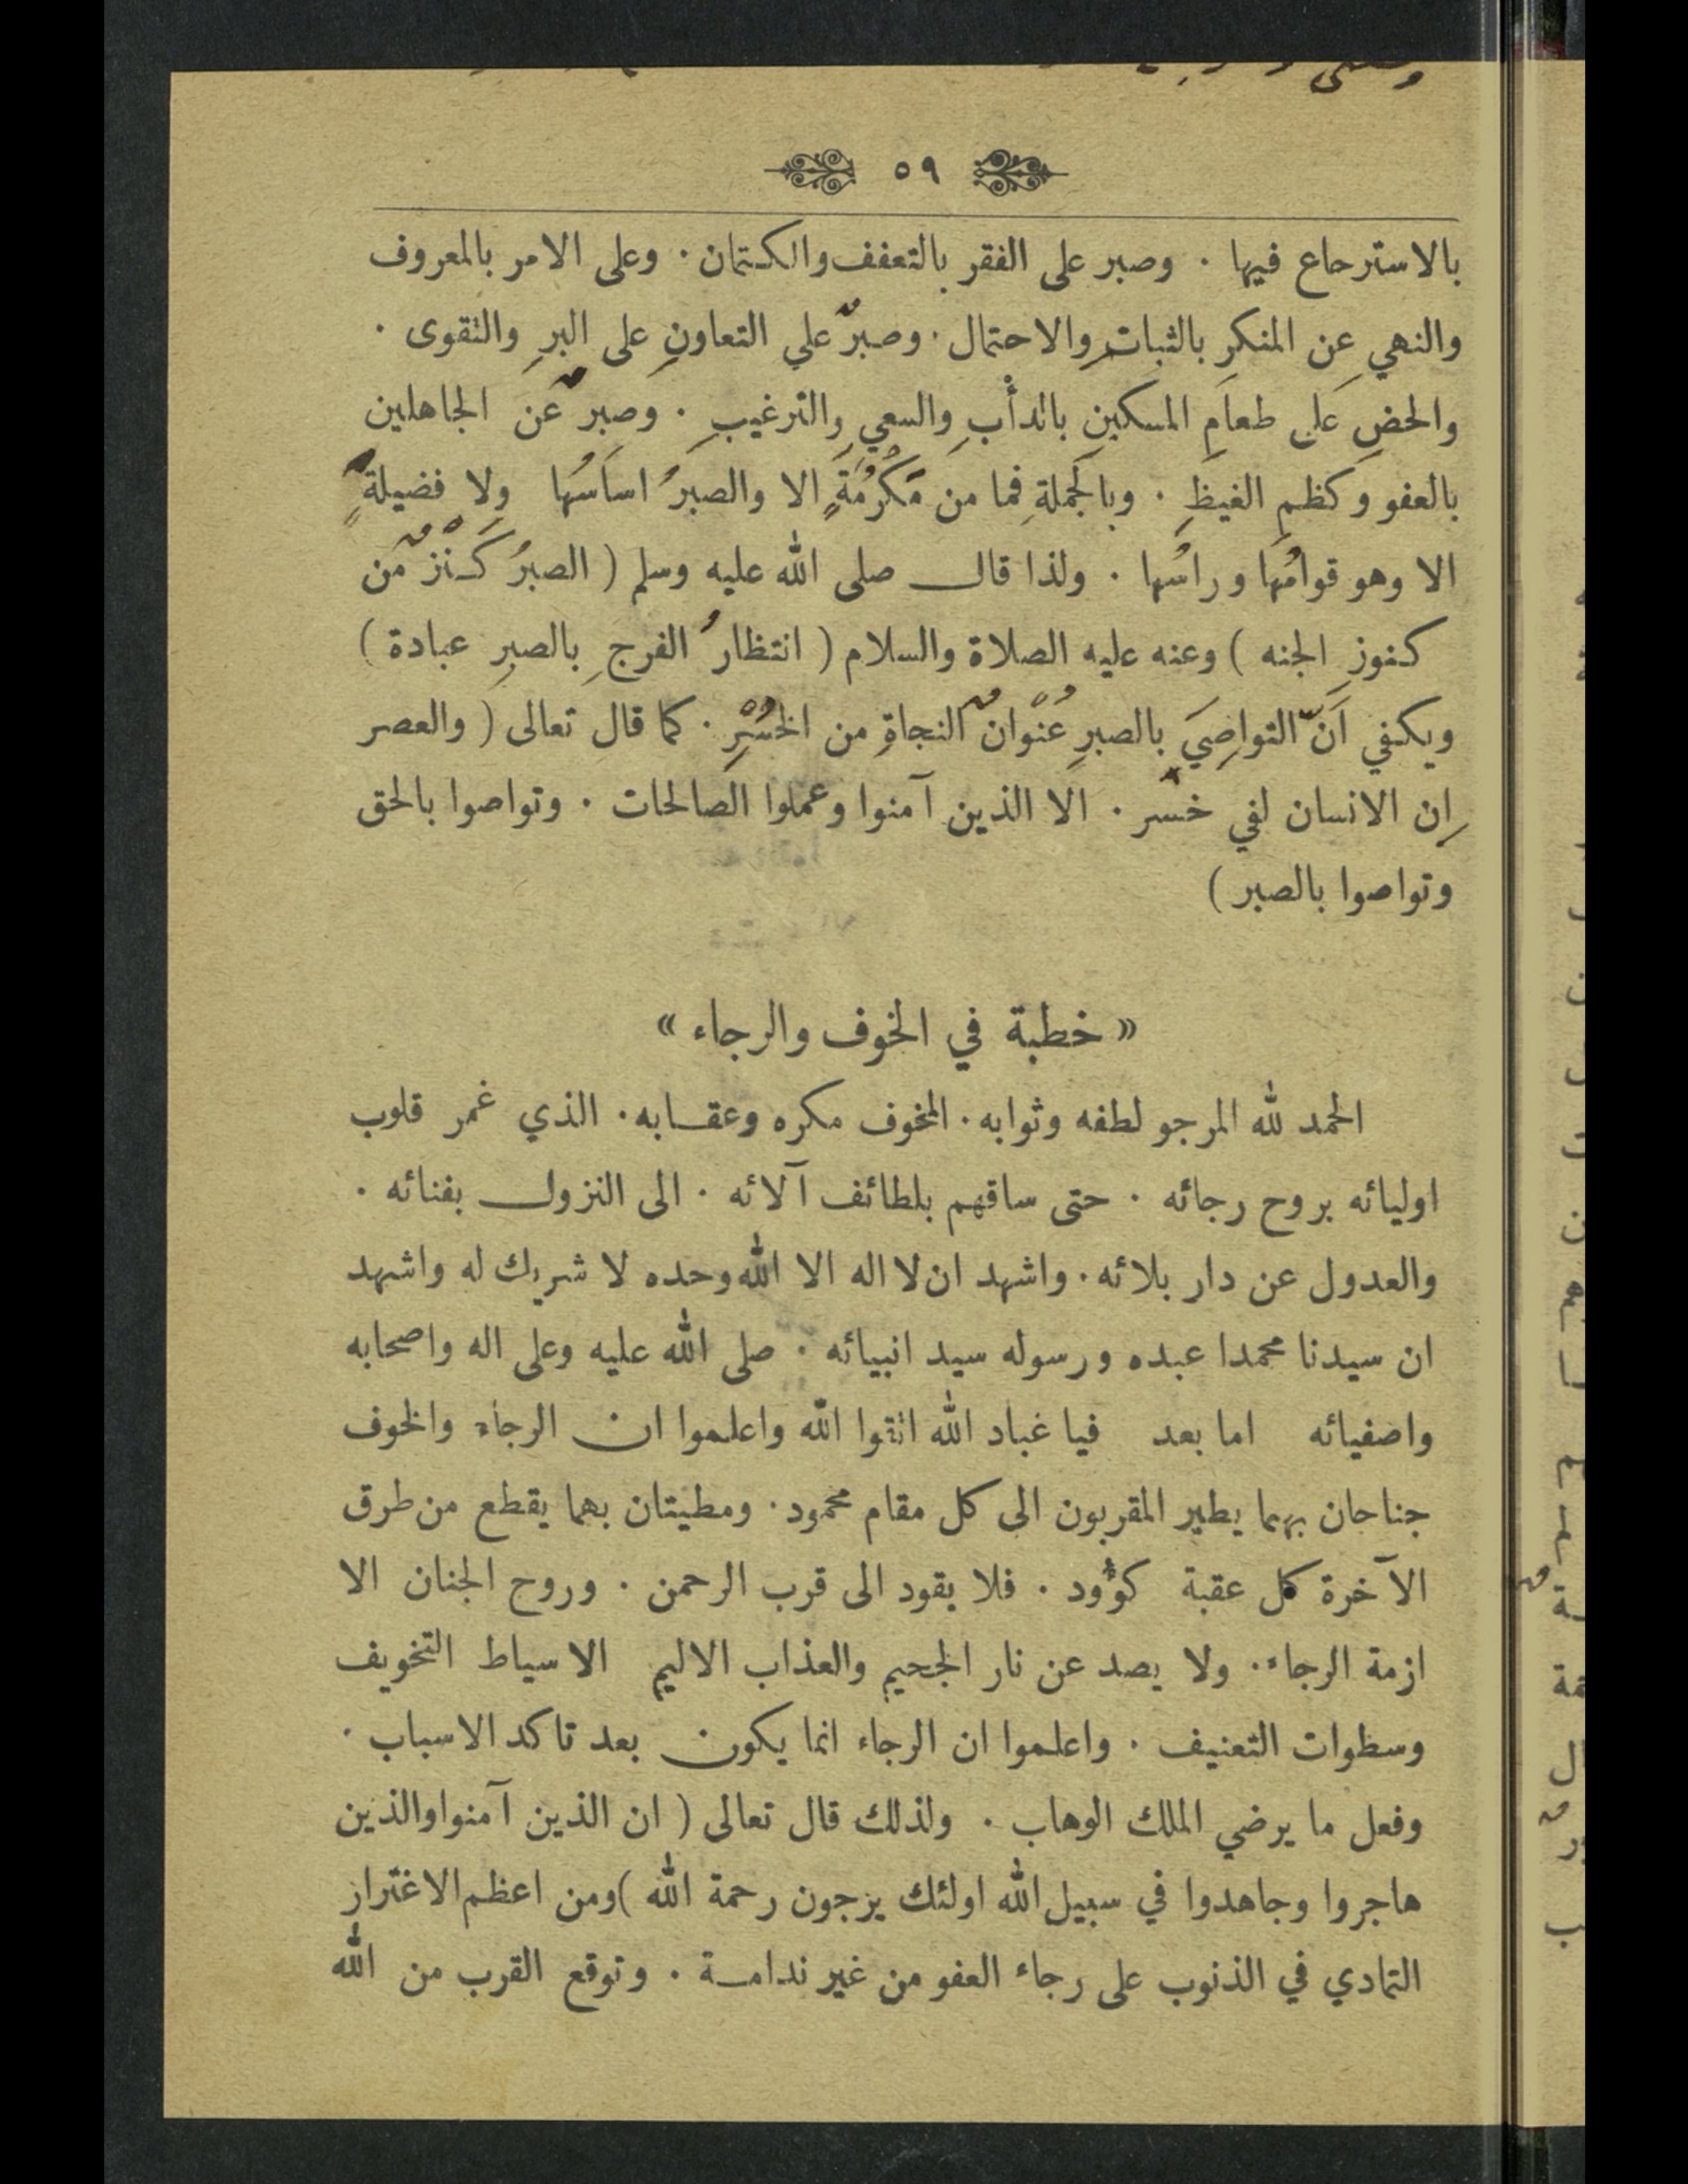 ٥٩
بالاسترحاع فيها . وصبر على الفقر بالتعفف والكتمان . وعلى الامر بالمعروف
والنهي عن المنكرِ بالثباتِ والاحتمال . وصبرٌ علي التعاونِ على البرِ والتقوى .
والحضِ على طعامِ المسكينِ بالدأْبِ والسعيِ والترغيبِ . وصبرٌ عَن الجاهلين
بالعفو وكظمِ الغيظِ . وبالجَملةِ فما من مَكْرُمَةٍ الا والصبرُ اساسُها ولا فضيلةٍ
الا وهو قوامُها وراسُها . ولذا قال صلى الله عليه وسلم ( الصبرُ كَنْزٌ من
كنوزِ الجنه ) وعنه عليه الصلاة والسلام ( انتظارُ الفرجِ بالصبرِ عبادة )
ويكفي اَنّ التواصِيَ بالصبرِ عُنْوانُ النجاةِ من الخُسْرِ . كما قال تعالى ( والعصر
اِن الانسان لفي خسر . الا الذين آمنوا وعملوا الصالحات . وتواصوا بالحق
وتواصوا بالصبر )
« خطبة في الخوف والرجاء »
الحمد لله المرجو لطفه وثوابه . المخوف مكره وعقابه . الذي غمر قلوب
اوليائه بروح رجائه . حتى ساقهم بلطائف آلائه . الى النزول بفنائه .
والعدول عن دار بلائه . واشهد ان لا اله الا الله وحده لا شريك له واشهد
ان سيدنا محمدا عبده ورسوله سيد انبيائه . صلى الله عليه وعلى اله واصحابه
واصفيائه اما بعد فيا غباد الله اتقوا الله واعلموا ان الرجاء والخوف
جناحان بهما يطير المقربون الى كل مقام محمود . ومطيتان بهما يقطع من طرق
الآخرة كل عقبة كوٴود . فلا يقود الى قرب الرحمن . وروح الجنان الا
ازمة الرجاء . ولا يصد عن نار الجحيم والعذاب الاليم الا سياط التخويف
وسظوات التعنيف . واعلموا ان الرجاء انما يكون بعد تاكد الاسباب .
وفعل ما يرضي الملك الوهاب . ولذلك قال تعالى ( ان الذين آمنوا والذين
هاجروا وجاهدوا في سبيل الله اولئك يزجون رحمة الله ) ومن اعظم الاغترار
التمادي في الذنوب على رجاء العفو من غير ندامة . وتوقع القرب من الله